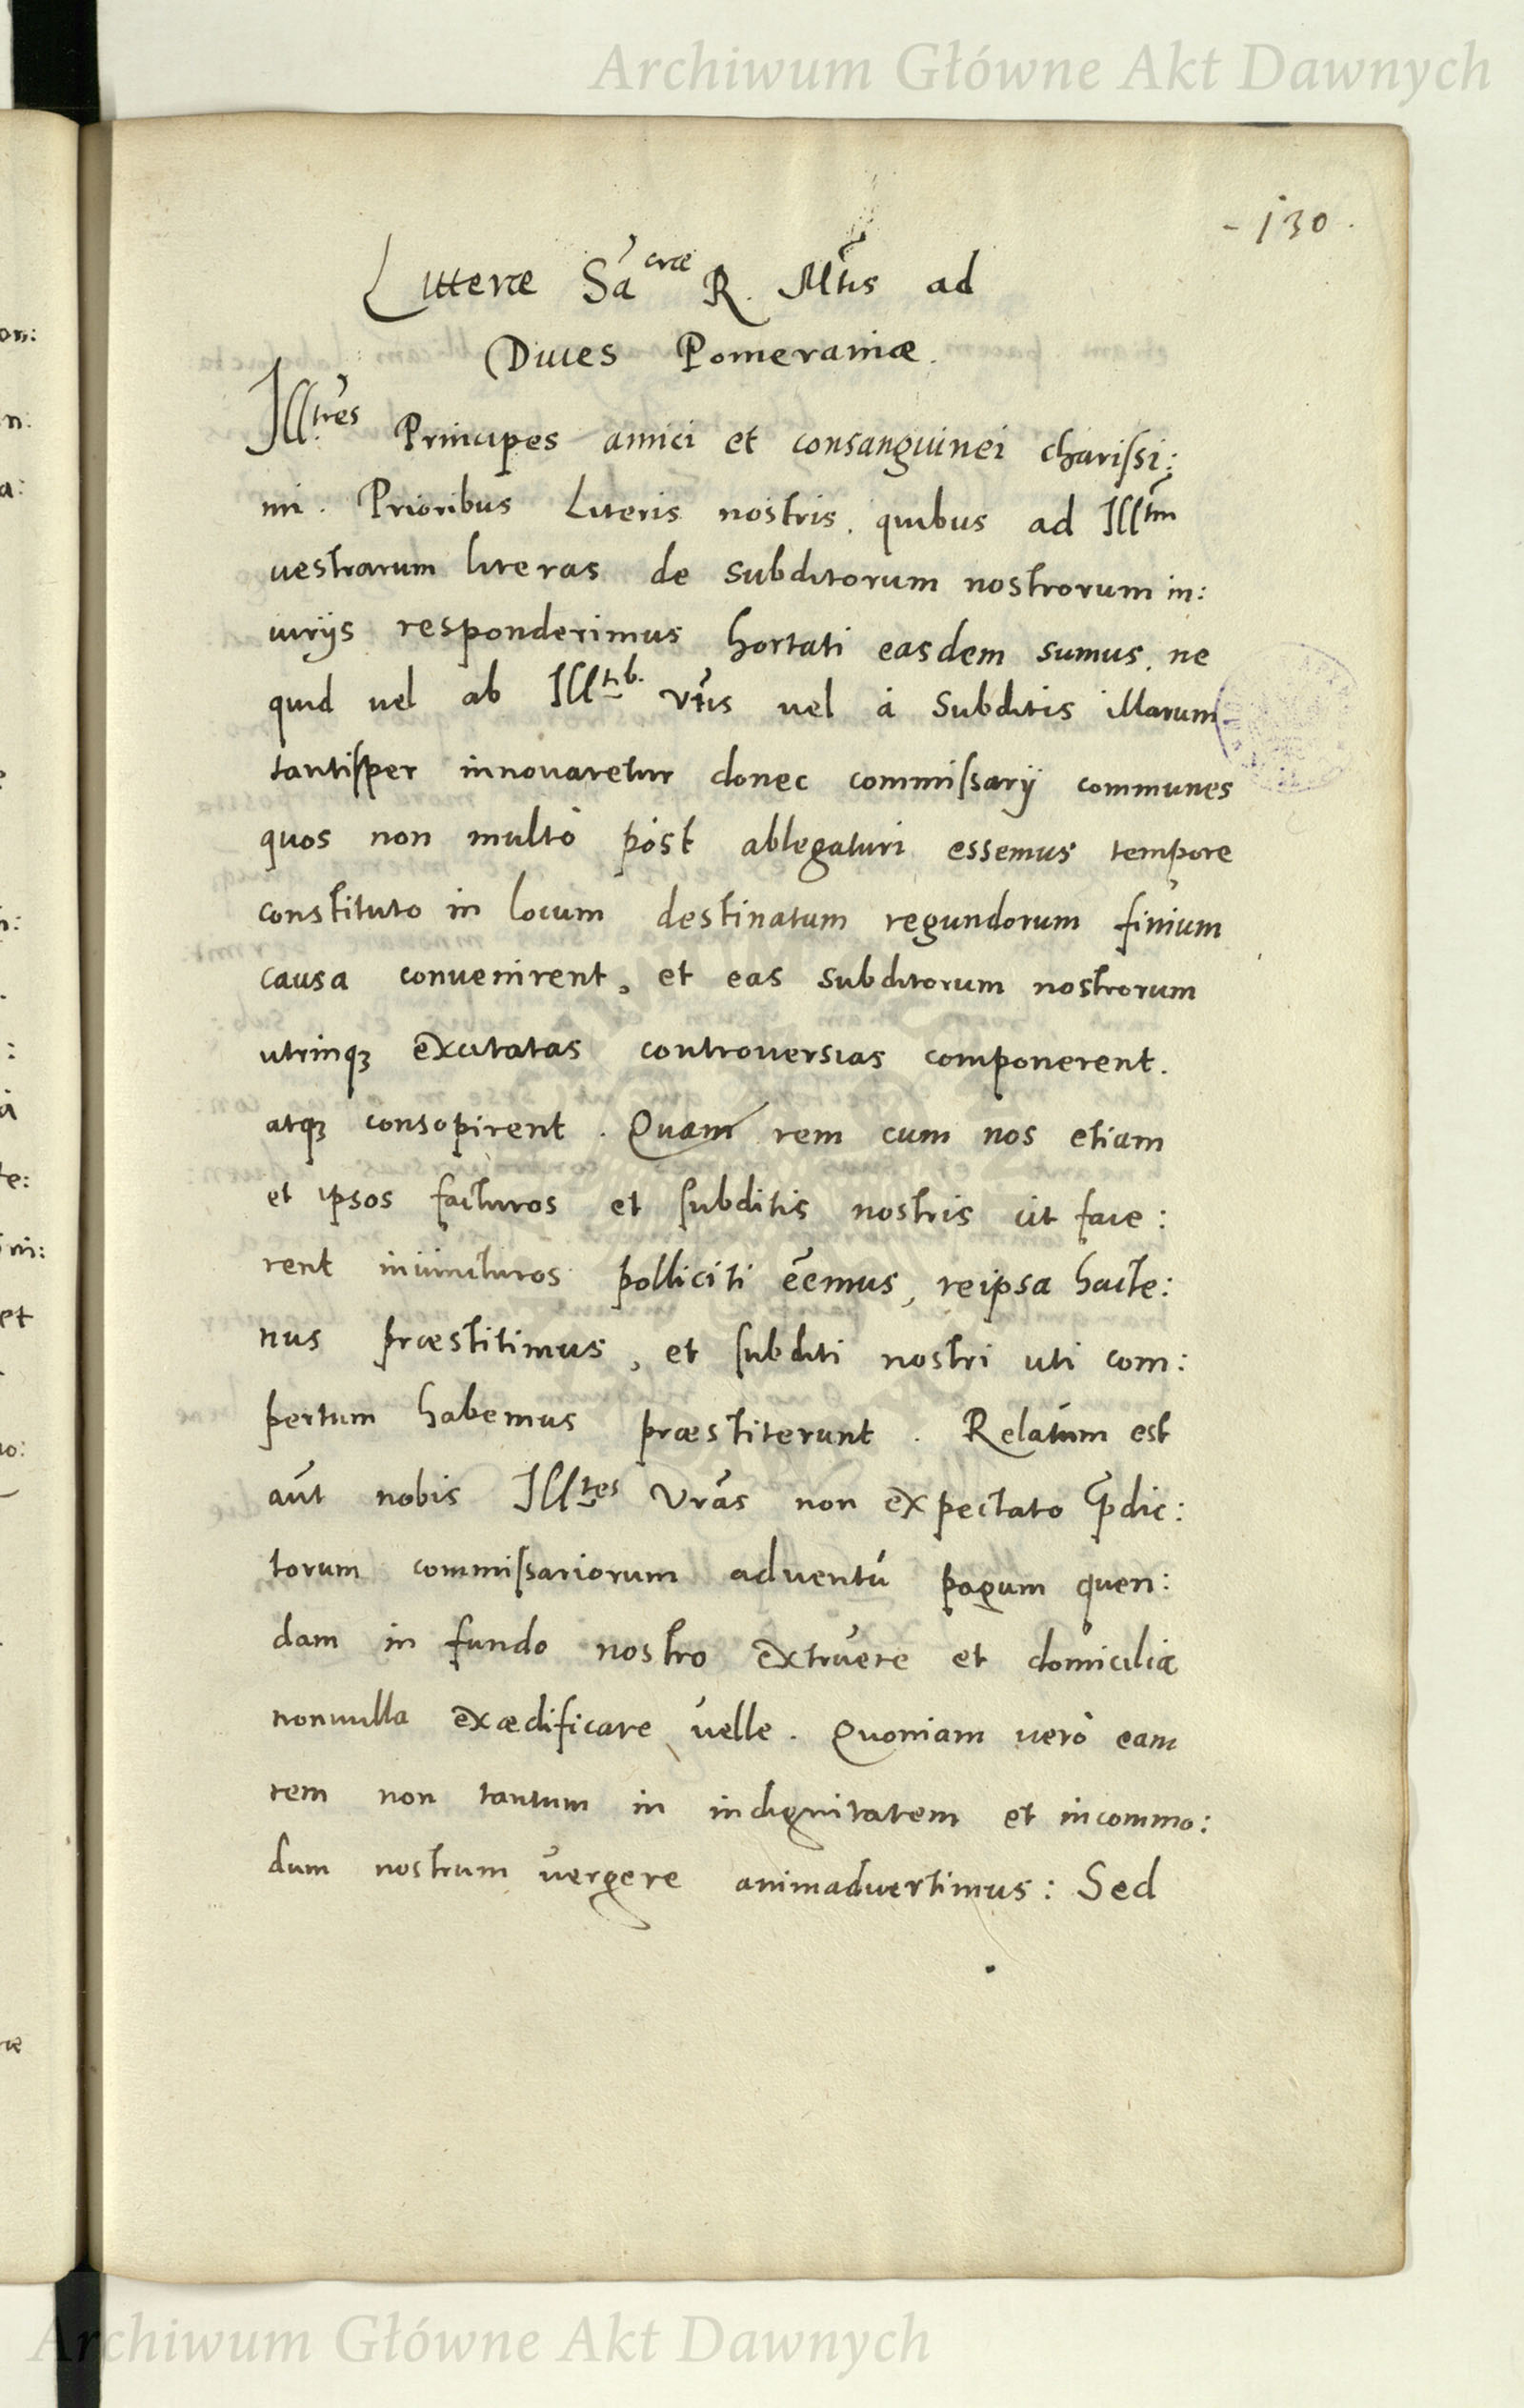 Archiwum Główne Akt Dawnych
- 130 .
Litteræ Sacræ R. Mtis ad
Duces Pomeraniæ.
Illtres Principes amici et consanguinei charissi:
mi. Prioribus Literis nostris, quibus ad Illtm
vestrarum literas de subditorum nostrorum in:
iurijs responderimus hortati easdem sumus, ne
quid vel ab Illrib. Vris vel à Subditis illarum
tantisper innovaretur donec commissarij communes
quos non multò pòst ablegaturi essemus tempore
constituto in locum destinatum regundorum finium
causa convenirent, et eas subditorum nostrorum
utrinq3 excitatas controversias componerent.
atq3 consopirent. Quam rem cum nos etiam
et ipsos facturos et subditis nostris ut face:
rent iniuncturos polliciti eēmus, reipsa hacte:
nus præstitimus, et subditi nostri uti com:
pertum habemus præstiterunt. Relatum est
aūt nobis Illtes Vrās non expectato p̄dic:
torum commissariorum adventu pagum quen:
dam in fundo nostro extruere et domicilia
nonnulla exædificare velle. Quoniam verò eam
rem non tantum in indignitatem et incommo:
dum nostrum vergere animadvertimus: Sed
Archiwum Główne Akt Dawnych